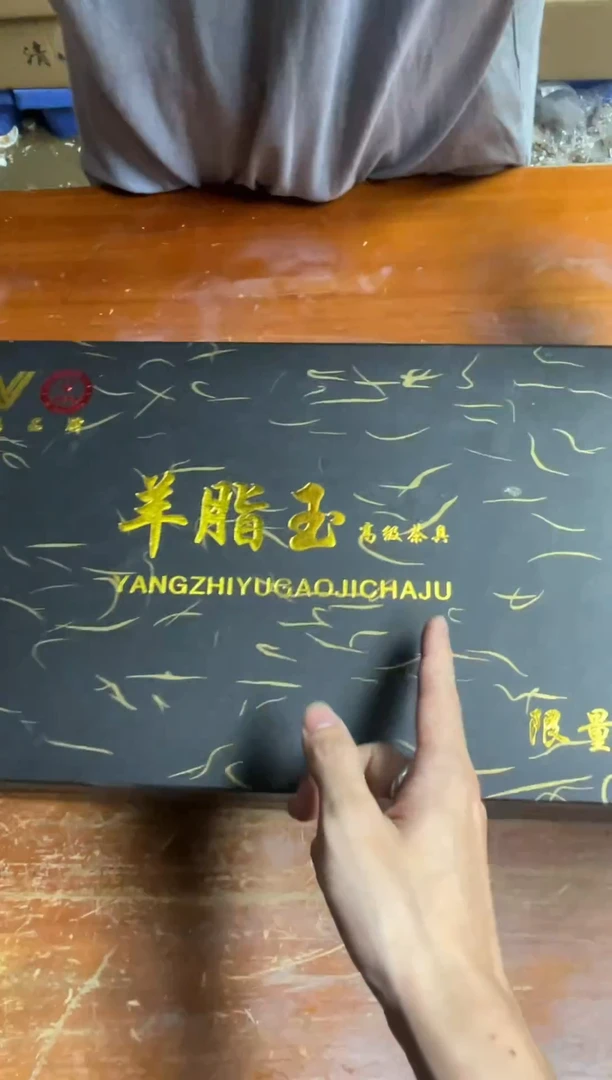 清
羊脂玉 高级茶具
YANGZHIYUGAOJICHAJU
限量